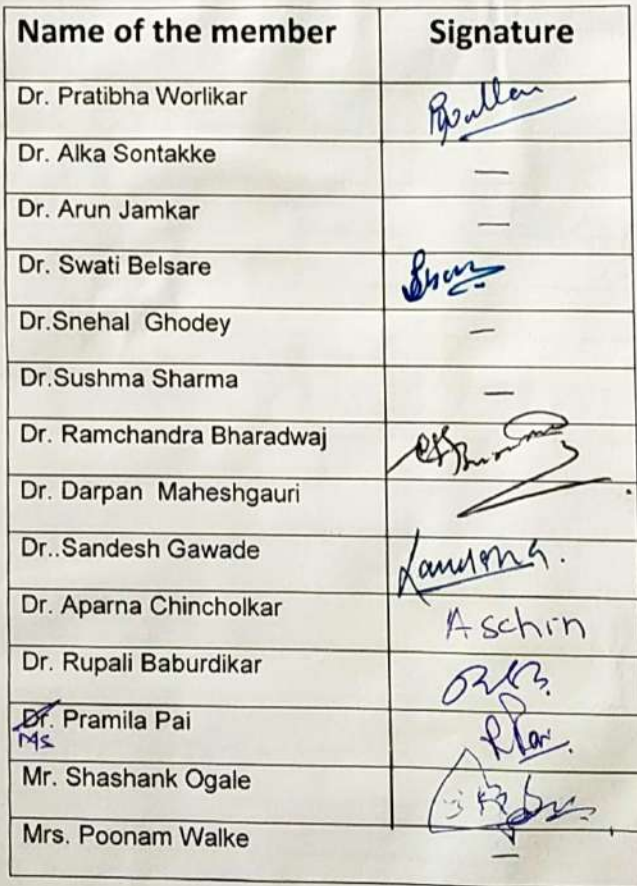 Name of the member Signature
Dr. Pratibha Worlikar
Dr. Alka Sontakke —
Dr. Arun Jamkar —
Dr. Swati Belsare
Dr.Snehal Ghodey —
Dr.Sushma Sharma —
Dr. Ramchandra Bharadwaj
Dr. Darpan Maheshgauri
Dr..Sandesh Gawade
Dr. Aparna Chincholkar Aschin
Dr. Rupali Baburdikar
Dr. Pramila Pai
Ms
Mr. Shashank Ogale
Mrs. Poonam Walke —